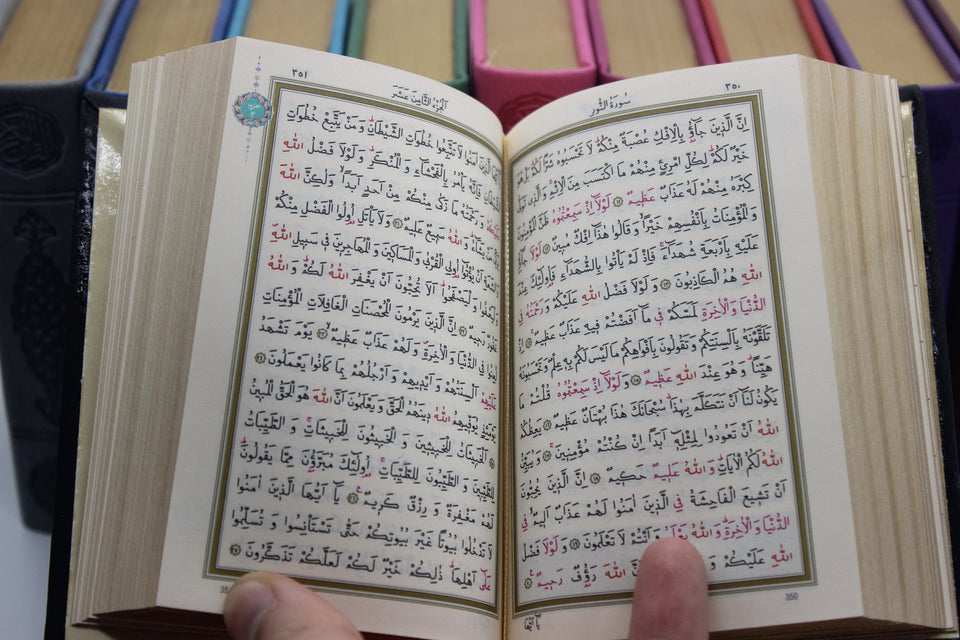 ٣٥٠
سُورَةُ النُّورِ
اِنَّ الَّذ۪ينَ جَٓاؤُ بِالْاِفْكِ عُصْبَةٌ مِنْكُمْ لَا تَحْسَبُوهُ شَرًّا لَكُمْ بَلْ هُوَ
خَيْرٌ لَكُمْ لِكُلِّ امْرِئٍ مِنْهُمْ مَا اكْتَسَبَ مِنَ الْاِثْمِ وَالَّذ۪ي تَوَلّٰى
كِبْرَهُ مِنْهُمْ لَهُ عَذَابٌ عَظ۪يمٌ ١١ لَوْلَٓا اِذْ سَمِعْتُمُوهُ ظَنَّ الْمُؤْمِنُونَ
وَالْمُؤْمِنَاتُ بِاَنْفُسِهِمْ خَيْرًا وَقَالُوا هٰذَٓا اِفْكٌ مُب۪ينٌ ١٢ لَوْلَا جَٓاؤُ
عَلَيْهِ بِاَرْبَعَةِ شُهَدَٓاءَ فَاِذْ لَمْ يَأْتُوا بِالشُّهَدَٓاءِ فَاُولٰٓئِكَ عِنْدَ
اللّٰهِ هُمُ الْكَاذِبُونَ ١٣ وَلَوْلَا فَضْلُ اللّٰهِ عَلَيْكُمْ وَرَحْمَتُهُ فِي
الدُّنْيَا وَالْاٰخِرَةِ لَمَسَّكُمْ ف۪ي مَٓا اَفَضْتُمْ ف۪يهِ عَذَابٌ عَظ۪يمٌ ١٤ اِذْ
تَلَقَّوْنَهُ بِاَلْسِنَتِكُمْ وَتَقُولُونَ بِاَفْوَاهِكُمْ مَا لَيْسَ لَكُمْ بِه۪ عِلْمٌ وَتَحْسَبُونَهُ
هَيِّنًا وَهُوَ عِنْدَ اللّٰهِ عَظ۪يمٌ ١٥ وَلَوْلَٓا اِذْ سَمِعْتُمُوهُ قُلْتُمْ مَا
يَكُونُ لَنَٓا اَنْ نَتَكَلَّمَ بِهٰذَا سُبْحَانَكَ هٰذَا بُهْتَانٌ عَظ۪يمٌ ١٦ يَعِظُكُمُ
اللّٰهُ اَنْ تَعُودُوا لِمِثْلِه۪ٓ اَبَدًا اِنْ كُنْتُمْ مُؤْمِن۪ينَ ١٧ وَيُبَيِّنُ
اللّٰهُ لَكُمُ الْاٰيَاتِ وَاللّٰهُ عَل۪يمٌ حَك۪يمٌ ١٨ اِنَّ الَّذ۪ينَ يُحِبُّونَ
اَنْ تَش۪يعَ الْفَاحِشَةُ فِي الَّذ۪ينَ اٰمَنُوا لَهُمْ عَذَابٌ اَل۪يمٌ فِي
الدُّنْيَا وَالْاٰخِرَةِ وَاللّٰهُ يَعْلَمُ وَاَنْتُمْ لَا تَعْلَمُونَ ١٩ وَلَوْلَا فَضْلُ
اللّٰهِ عَلَيْكُمْ وَ اللّٰهَ رَؤُ۫فٌ رَح۪يمٌ ٢٠
يَٓا اَيُّهَا
350
٣٥١
اَلْجُزْءُ الثَّامِنَ عَشَرَ
الَّذ۪ينَ اٰمَنُوا لَا تَتَّبِعُوا خُطُوَاتِ الشَّيْطَانِ وَمَنْ يَتَّبِعْ خُطُوَاتِ
فَاِنَّهُ يَأْمُرُ بِالْفَحْشَٓاءِ وَالْمُنْكَرِ وَلَوْلَا فَضْلُ اللّٰهِ
وَرَحْمَتُهُ مَا زَكٰى مِنْكُمْ مِنْ اَحَدٍ اَبَدًا وَلٰكِنَّ اللّٰهَ
مَنْ يَشَٓاءُ وَاللّٰهُ سَم۪يعٌ عَل۪يمٌ ٢١ وَلَا يَأْتَلِ اُو۬لُوا الْفَضْلِ مِنْكُمْ
وَالسَّعَةِ اَنْ يُؤْتُٓوا اُو۬لِي الْقُرْبٰى وَالْمَسَاك۪ينَ وَالْمُهَاجِر۪ينَ ف۪ي سَب۪يلِ اللّٰهِ
وَلْيَعْفُوا وَلْيَصْفَحُوا اَلَا تُحِبُّونَ اَنْ يَغْفِرَ اللّٰهُ لَكُمْ وَاللّٰهُ
غَفُورٌ رَح۪يمٌ ٢٢ اِنَّ الَّذ۪ينَ يَرْمُونَ الْمُحْصَنَاتِ الْغَافِلَاتِ الْمُؤْمِنَاتِ
لُعِنُوا فِي الدُّنْيَا وَالْاٰخِرَةِ وَلَهُمْ عَذَابٌ عَظ۪يمٌ ٢٣ يَوْمَ تَشْهَدُ
عَلَيْهِمْ اَلْسِنَتُهُمْ وَاَيْد۪يهِمْ وَاَرْجُلُهُمْ بِمَا كَانُوا يَعْمَلُونَ ٢٤
يَوْمَئِذٍ يُوَفّ۪يهِمُ اللّٰهُ د۪ينَهُمُ الْحَقَّ وَيَعْلَمُونَ اَنَّ اللّٰهَ هُوَ الْحَقُّ الْمُب۪ينُ
٢٥ اَلْخَب۪يثَاتُ لِلْخَب۪يث۪ينَ وَالْخَب۪يثُونَ لِلْخَب۪يثَاتِ وَالطَّيِّبَاتُ
لِلطَّيِّب۪ينَ وَالطَّيِّبُونَ لِلطَّيِّبَاتِ اُو۬لٰٓئِكَ مُبَرَّؤُ۫نَ مِمَّا يَقُولُونَ
لَهُمْ مَغْفِرَةٌ وَرِزْقٌ كَر۪يمٌ ٢٦ يَٓا اَيُّهَا الَّذ۪ينَ اٰمَنُوا
لَا تَدْخُلُوا بُيُوتًا غَيْرَ بُيُوتِكُمْ حَتّٰى تَسْتَأْنِسُوا وَتُسَلِّمُوا
عَلٰٓى اَهْلِهَا ذٰلِكُمْ خَيْرٌ لَكُمْ لَعَلَّكُمْ تَذَكَّرُونَ ٢٧